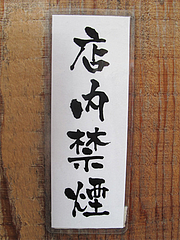 店内禁煙